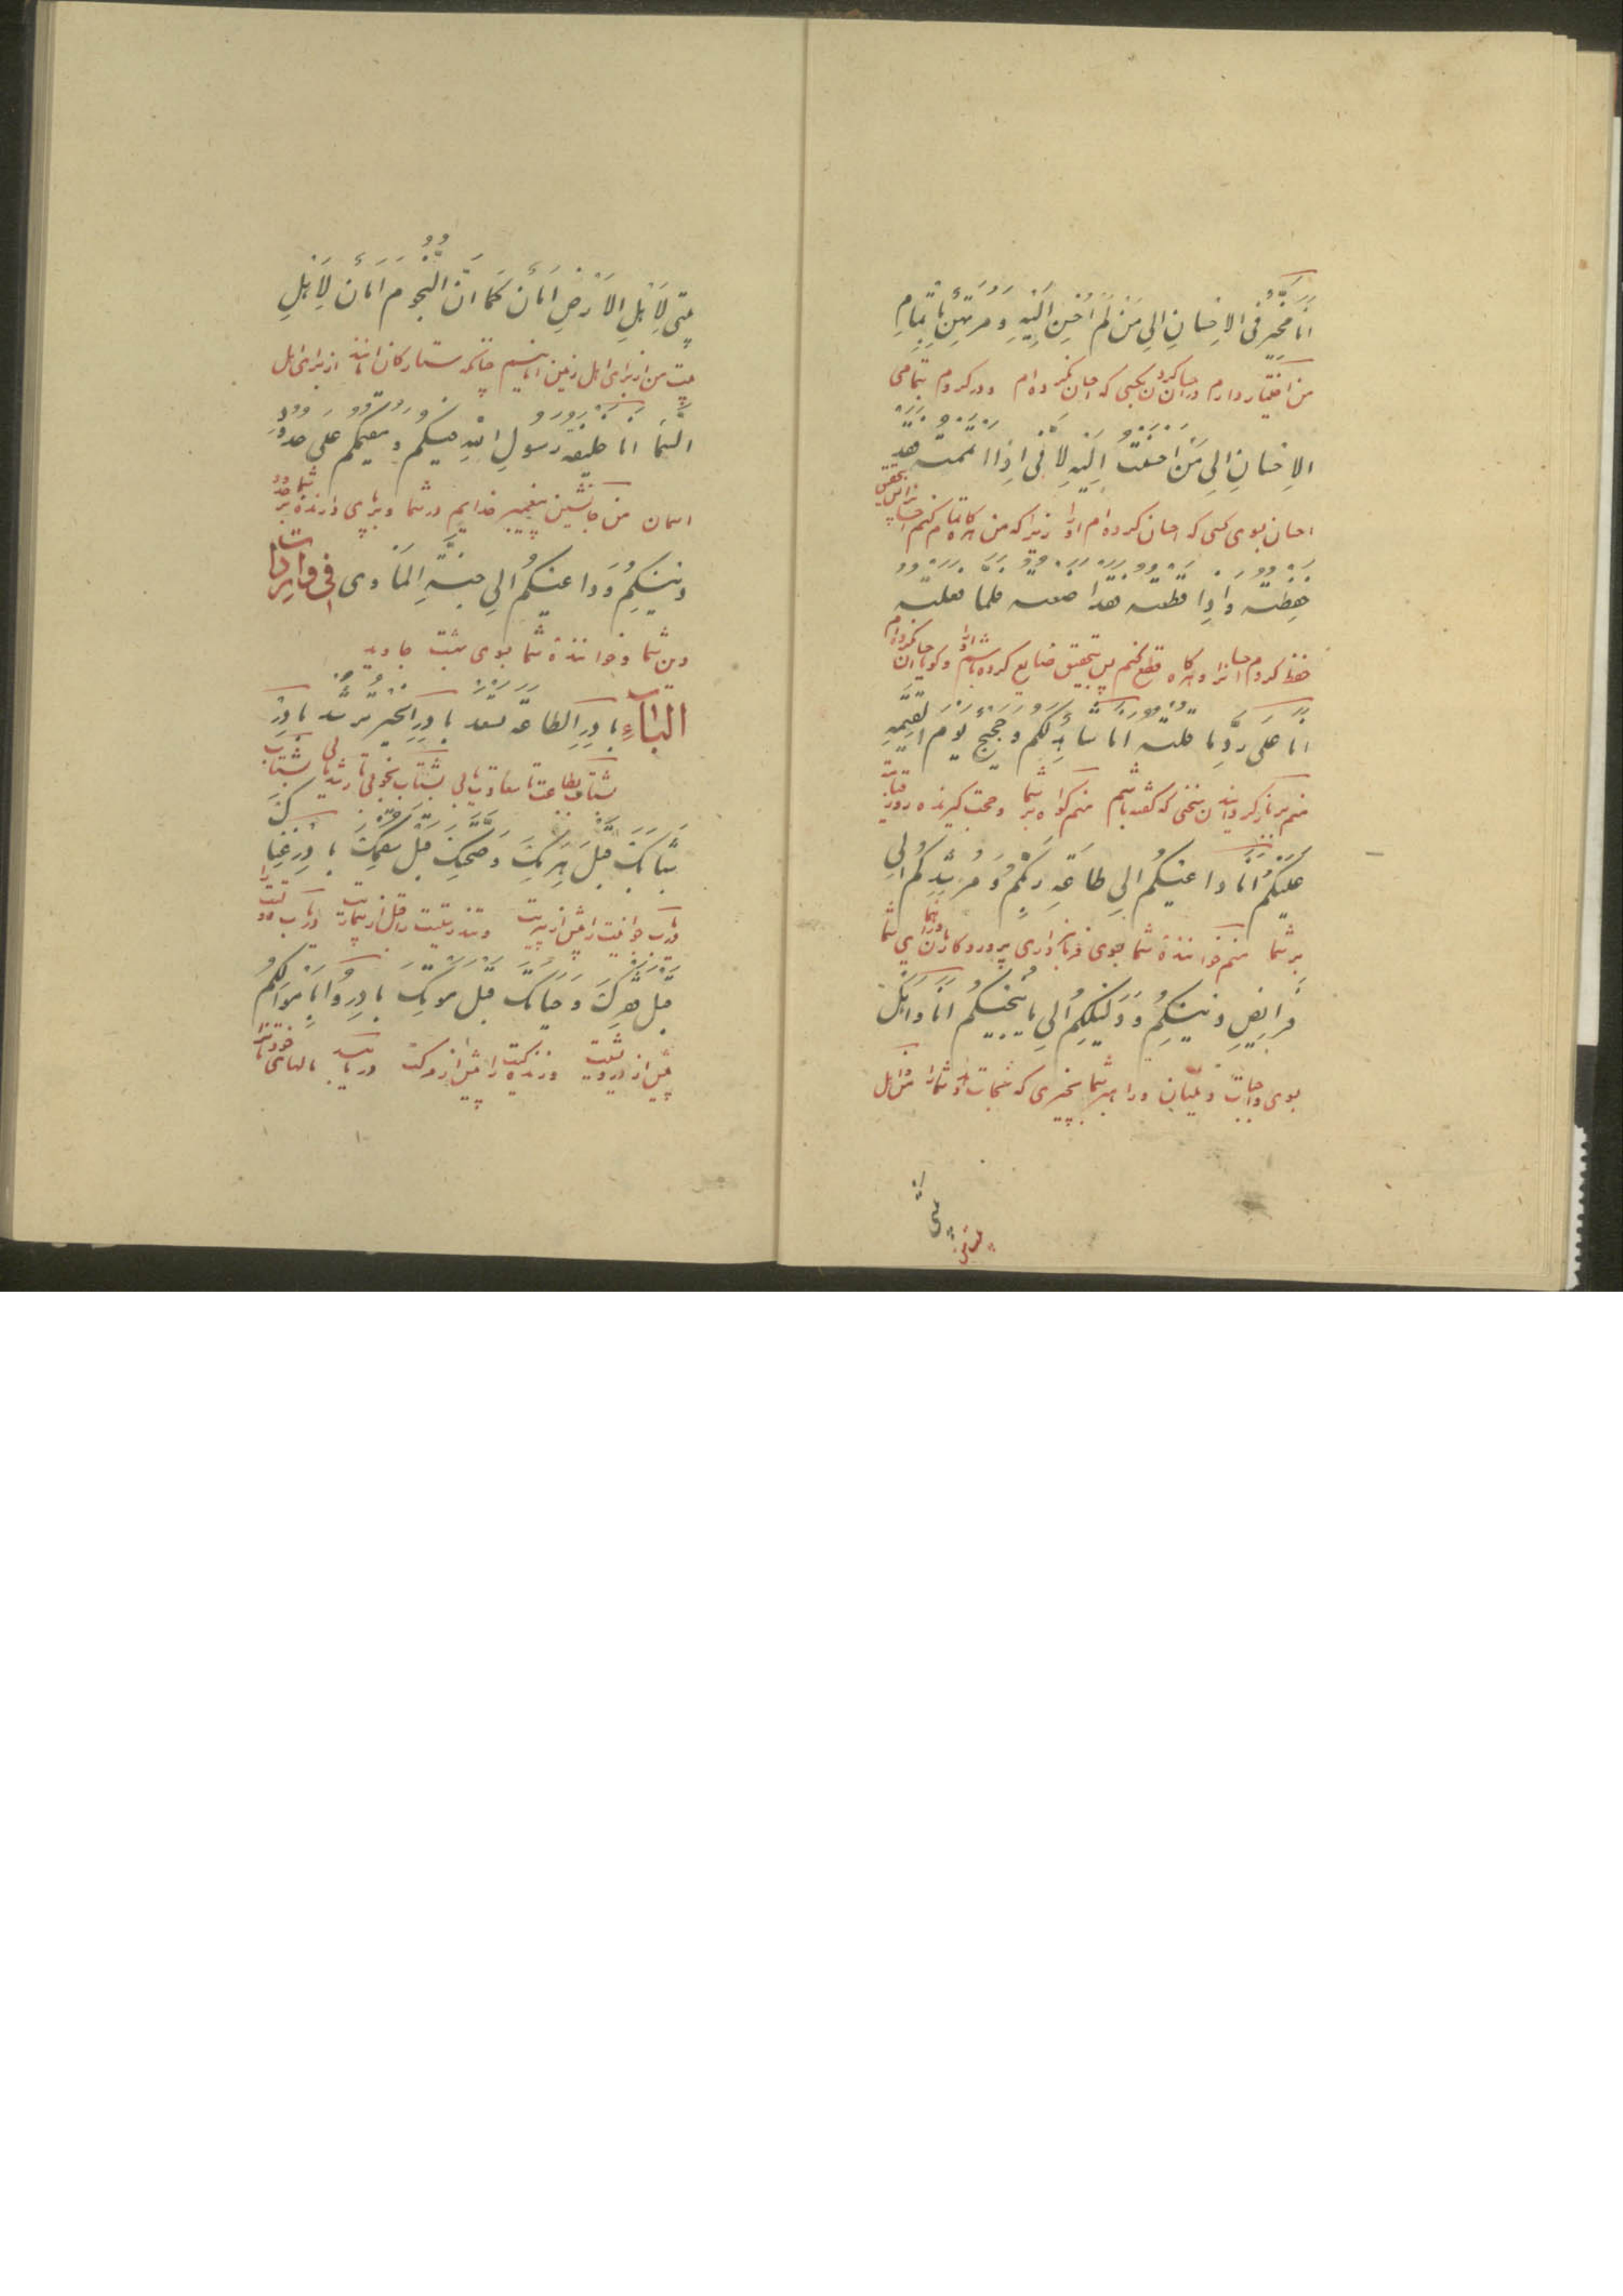 انا مخیر فی الاحسان الی من لم احسن الیه و مرتهن باتمام
من اختیار دارم در احسان کردن بکسی که احسان نکرده‌ام و در کردم بتمامی
الاحسان الی من احسنت الیه لانی اذا اتممته فقد
احسان بسوی کسی که احسان کرده‌ام او را زیرا که من هرگاه تمام کنم احسانرا پس بتحقیق
حفظته و اذا قطعته فقد اضعته
حفظ کردم احسانرا و هرگاه قطع کنم پس بتحقیق ضایع کرده باشم او را
انا علی رد ما قلته انا شاهد لکم و حجیج یوم القیمه
منم بر باز گردانیدن سخنی که گفته باشم منم گواه بر شما و حجت گیرنده روز قیامت
علیکم انا داعیکم الی طاعة ربکم و مرشدکم الی
بر شما منم خواننده شما بسوی فرمانبرداری پروردگارتان و راهنمای شما
فرایض دینکم و دلیلکم الی ما ینجیکم انا و اهل
بسوی واجبات دینتان و راهبر شما بچیزی که نجات دهد شما را من و اهل
بیتی
بیتی لاهل الارض امان کما ان النجوم امان لاهل
بیت من از برای اهل زمین امانیم چنانکه ستارگان امانند از برای اهل
السما انا خلیفة رسول الله فیکم و مقیمکم علی حدود
اسمان من جانشین پیغمبر خدایم در شما و برپای دارنده شما بر حدود
دینکم و داعیکم الی جنة الماوی
دین شما و خواننده شما بسوی بهشت جاوید
الباء بادر الطاعة تسعد بادر الخیر ترشد بادر
بشتاب بطاعت تا سعادت یابی بشتاب بخوبی تا رشد یابی بشتاب
شبابک قبل هرمک و صحتک قبل سقمک بادر غناک
دریاب جوانیت را پیش از پیریت و تندرستیت را قبل از بیماریت دریاب
قبل فقرک و حیاتک قبل موتک بادروا باموالکم
پیش از درویشیت و زندگیت را پیش از مرکت دریابید مالهای خودتانرا